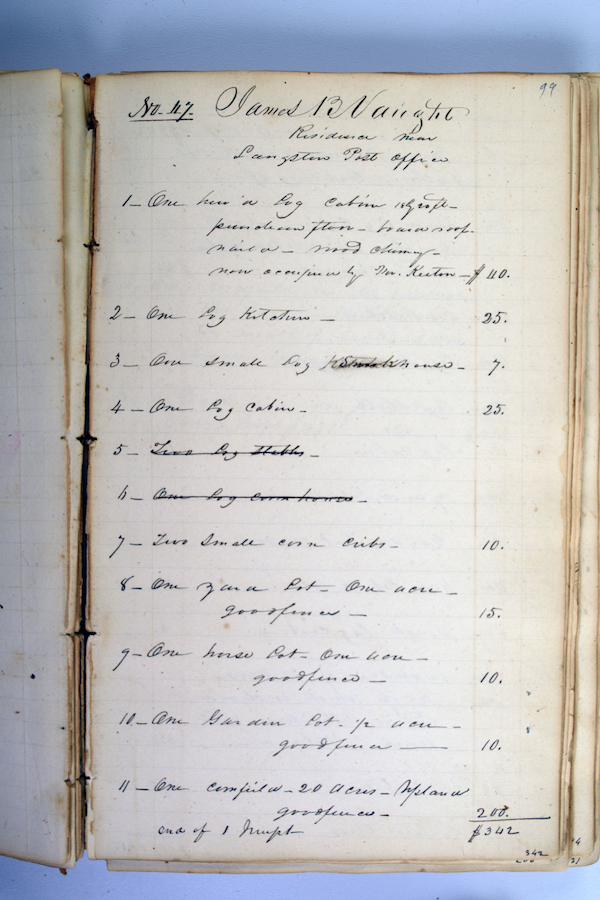 99
No. 47. James B Vaught
Residence near
Langston Post Office
1 - One hew'd Log Cabin 18 ft -
puncheon floor - board roof
nailed - wood chimney -
now occupied by Mr. Keeton - $40.
2 - One Log Kitchen - 25.
3 - One small Log house - 7.
4 - One Log Cabin - 25.
5 - Two Log Stables -
6 - One Log corn house -
7 - Two Small corn Cribs - 10.
8 - One yard Lot - One acre -
good fence - 15.
9 - One horse Lot - One acre -
good fence - 10.
10 - One Garden Lot - 1/2 acre -
good fence - 10.
11 - One cornfield - 20 acres - Upland
good fence - 200.
end of 1 $342
342